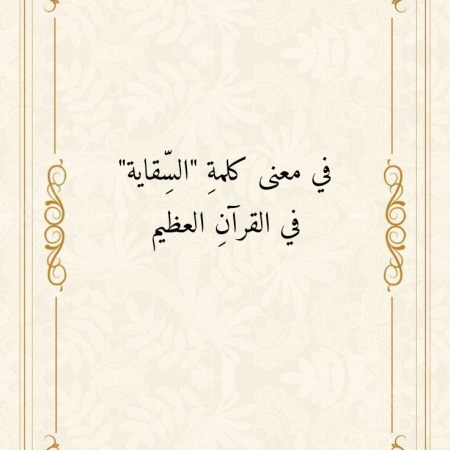 في معنى كلمةِ "السِّقاية"
في القرآنِ العظيم